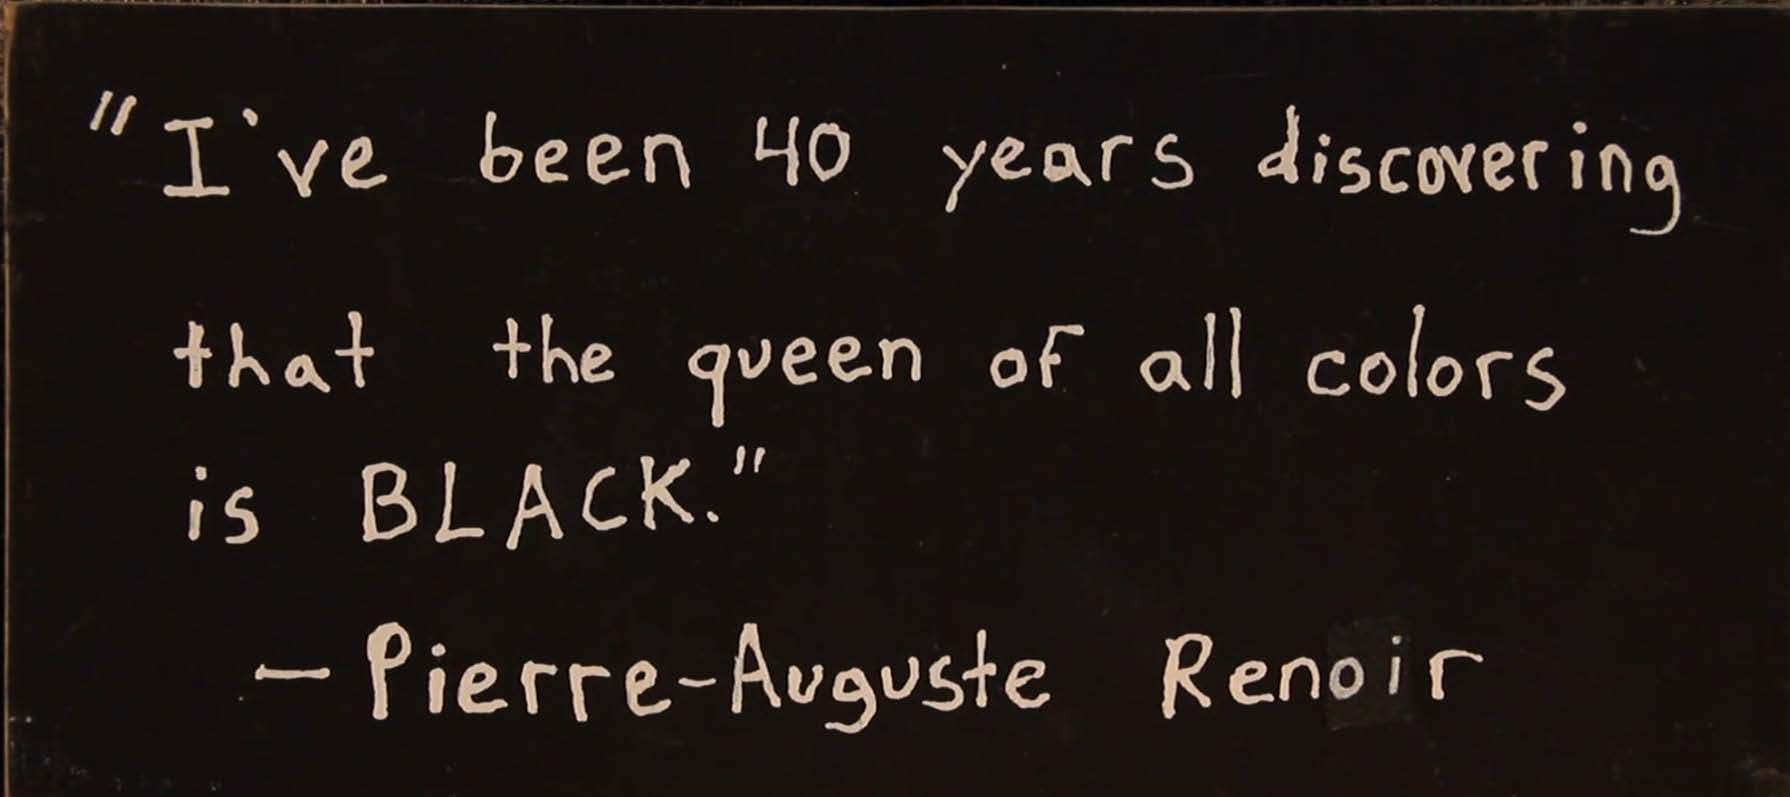 "I've been 40 years discovering
that the queen of all colors
is BLACK."
— Pierre-Auguste Renoir